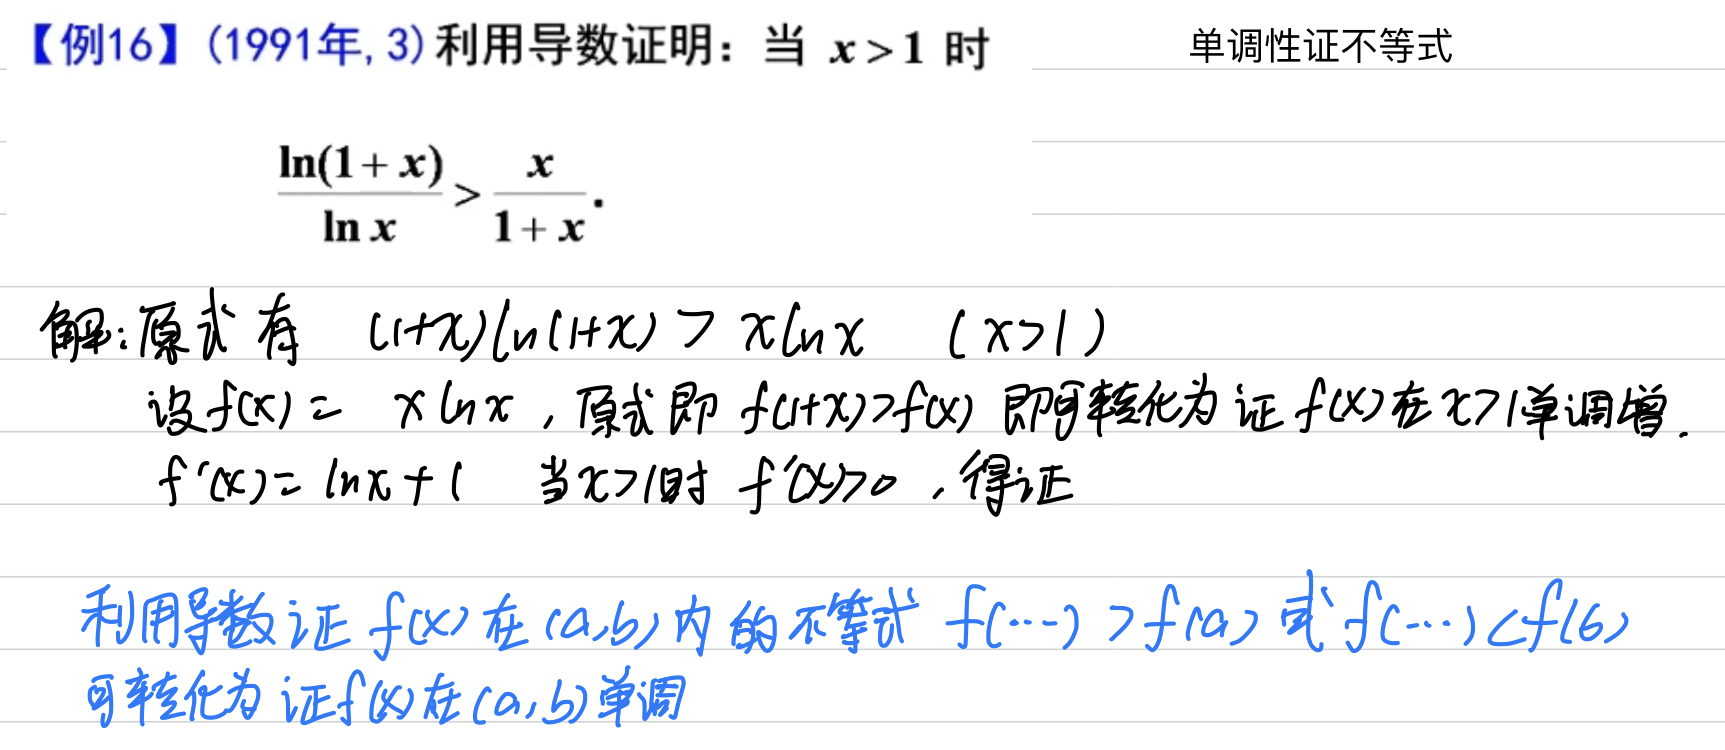 【例16】(1991年,3)利用导数证明：当 x>1 时
单调性证不等式
ln(1+x)/ln x > x/(1+x).
解:原式有 (1+x)ln(1+x) > xlnx (x>1)
设f(x)= xlnx , 原式即 f(1+x)>f(x) 即可转化为证 f(x)在x>1单调增.
f'(x)= lnx+1 当x>1时 f'(x)>0 ,得证
利用导数证 f(x)在(a,b)内的不等式 f(…)>f(a)或f(…)<f(b)
可转化为证f(x)在(a,b)单调